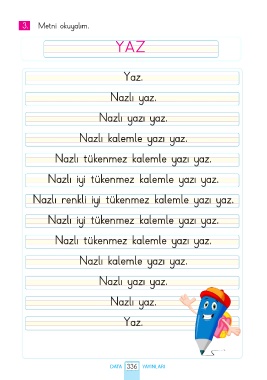 3. Metni okuyalım.
YAZ
Yaz.
Nazlı yaz.
Nazlı yazı yaz.
Nazlı kalemle yazı yaz.
Nazlı tükenmez kalemle yazı yaz.
Nazlı iyi tükenmez kalemle yazı yaz.
Nazlı renkli iyi tükenmez kalemle yazı yaz.
Nazlı iyi tükenmez kalemle yazı yaz.
Nazlı tükenmez kalemle yazı yaz.
Nazlı kalemle yazı yaz.
Nazlı yazı yaz.
Nazlı yaz.
Yaz.
DATA 336 YAYINLARI